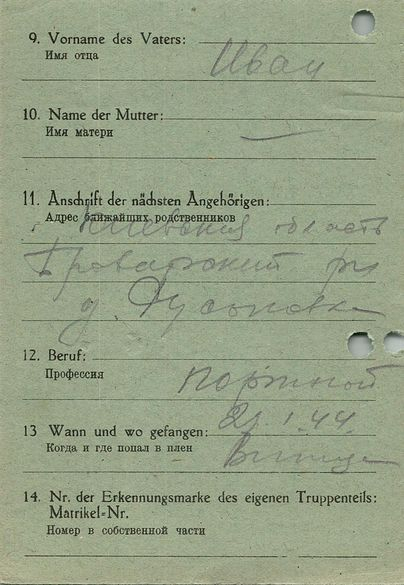 9. Vorname des Vaters:
Иван
Имя отца
10. Name der Mutter:
Имя матери
—
11. Anschrift der nächsten Angehörigen:
Адрес ближайших родственников
Киевская область
Броварский
д.
12. Beruf:
Профессия
портной
13 Wann und wo gefangen:
21. I. 44.
Когда и где попал в плен
14. Nr. der Erkennungsmarke des eigenen Truppenteils:
Matrikel-Nr.
Номер в собственной части